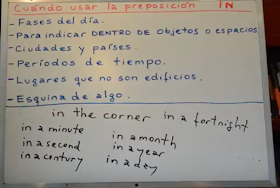 Cuándo usar la preposición IN
-Fases del día.
-Para indicar DENTRO DE objetos o espacios
-Ciudades y países.
-Períodos de tiempo.
-Lugares que no son edificios.
-Esquina de algo.
in the corner in a fortnight
in a minute in a month
in a second in a year
in a century in a day